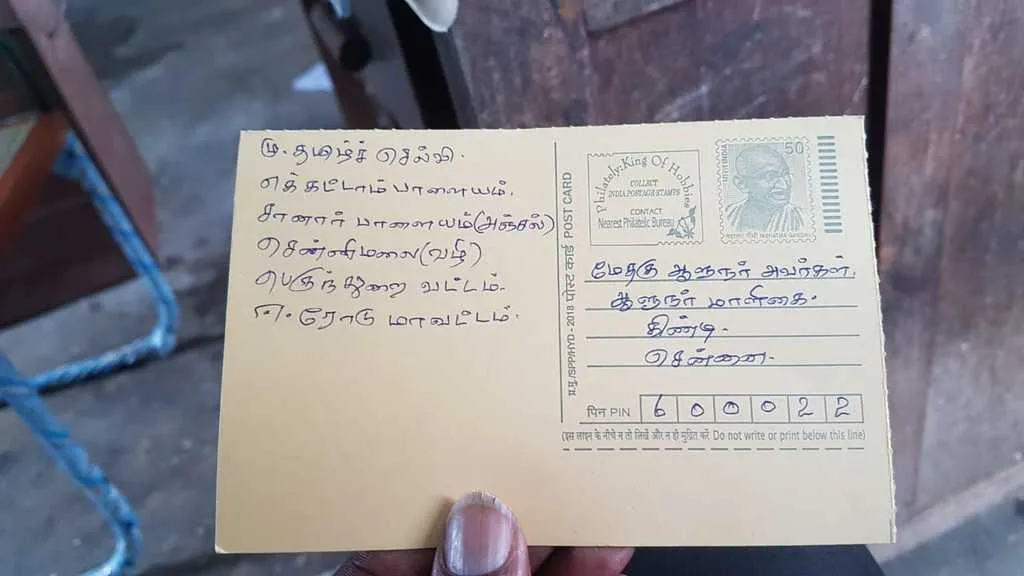 மு. தமிழ்ச் செல்வி.
எக்கட்டாம்பாளையம்.
சானார் பாளையம்(அஞ்சல்)
சென்னிமலை(வழி)
பெருந்துறை வட்டம்.
ஈ.ரோடு மாவட்டம்.
प्र.मु./SPP/HYD - 2018 पोस्ट कार्ड POST CARD
Philately: King Of Hobbies
COLLECT
INDIA POSTAGE STAMPS
CONTACT
Nearest Philatelic Bureau
50
महात्मा गाँधी MAHATMA GANDHI
மேதகு ஆளுநர் அவர்கள்,
ஆளுநர் மாளிகை.
கிண்டி.
சென்னை.
पिन PIN 600022
(इस लाइन के नीचे न तो लिखें और न ही मुद्रित करें Do not write or print below this line)